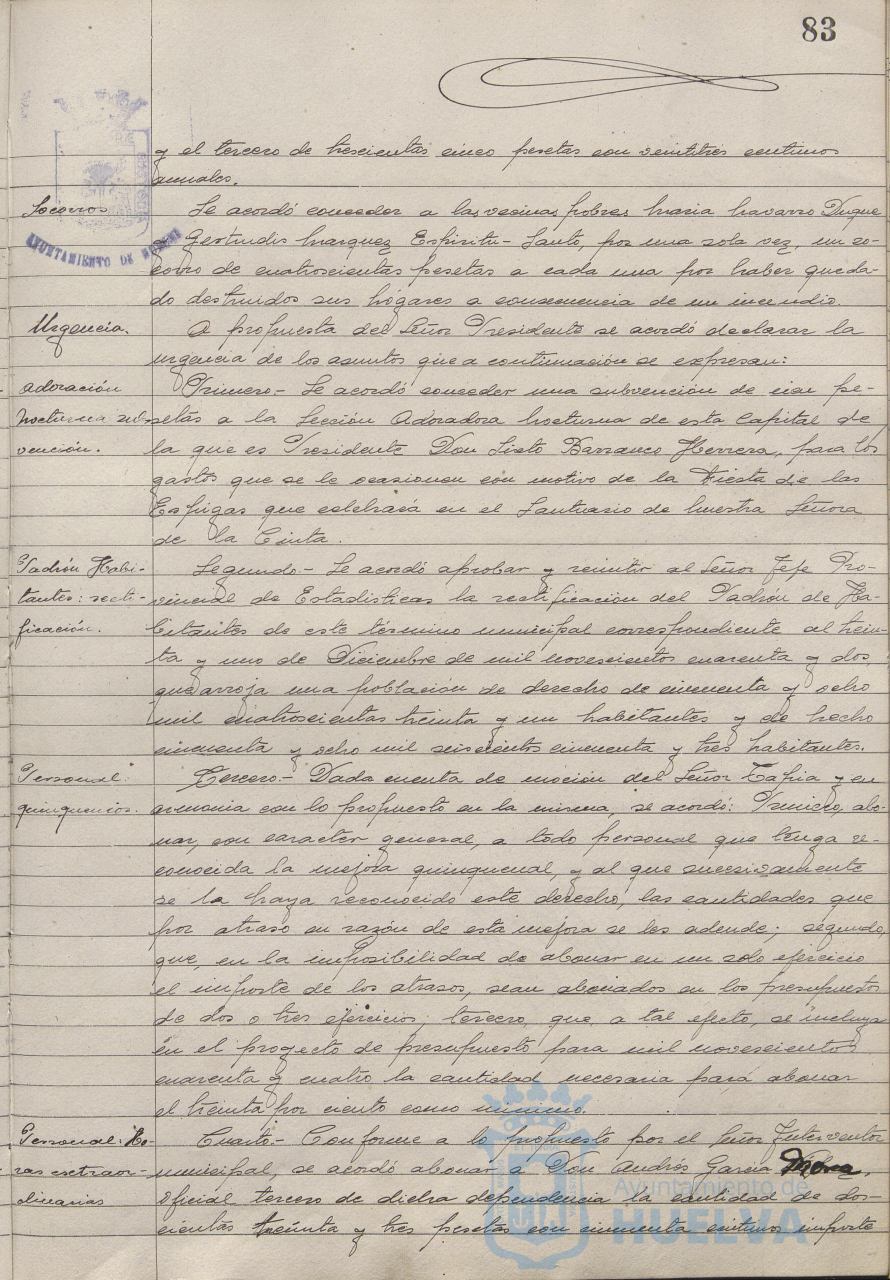 83
y el tercero de trescientas cinco pesetas con veintitres centimos
anuales.
Socorros
Se acordó conceder a las vecinas pobres Maria Navarro Duque
y Gertrudis Marquez Espiritu-Santo, por una sola vez, un so-
AYUNTAMIENTO DE HUELVA
corro de cuatrocientas pesetas a cada una por haber queda-
do destruidos sus hogares a consecuencia de un incendio.
Urgencia.
A propuesta del Señor Presidente se acordó declarar la
urgencia de los asuntos que a continuación se expresan:
Adoración
Primero.- Se acordó conceder una subvención de cien pe-
Nocturna sub-
setas a la Sección Adoradora Nocturna de esta Capital de
vención.
la que es Presidente Don Sixto Barranco Herrera, para los
gastos que se le ocasionen con motivo de la Fiesta de las
Espigas que celebrará en el Santuario de Nuestra Señora
de la Cinta.
Padrón Habi-
Segundo.- Se acordó aprobar y remitir al Señor Jefe Pro-
tantes: recti-
vincial de Estadisticas la rectificación del Padrón de Ha-
ficación.
bitantes de este término municipal correspondiente al trein-
ta y uno de Diciembre de mil novescientos cuarenta y dos,
que arroja una población de derecho de cincuenta y ocho
mil cuatroscientas treinta y un habitantes y de hecho
cincuenta y ocho mil seiscientos cincuenta y tres habitantes.
Personal:
Tercero.- Dada cuenta de moción del Señor Tapia y en
quinquenios.
armonia con lo propuesto en la misma, se acordó: Primero, abo-
nar, con caracter general, a todo personal que tenga re-
conocida la mejora quinquenal, y al que sucesivamente
se la haya reconocido este derecho, las cantidades que
por atraso en razón de esta mejora se les adeude; segundo,
que, en la imposibilidad de abonar en un solo ejercicio
el importe de los atrasos, sean abonados en los presupuestos
de dos o tres ejercicios; tercero, que, a tal efecto, se incluya
en el proyecto de presupuesto para mil novescientos
cuarenta y cuatro la cantidad necesaria para abonar
el treinta por ciento como minimo.
Personal: Ho-
Cuarto.- Conforme a lo propuesto por el Señor Interventor
ras extraor-
municipal, se acordó abonar a Don Andrés Garcia Mora,
dinarias
oficial tercero de dicha dependencia la cantidad de dos-
cientas treinta y tres pesetas con cincuenta centimos importe
Ayuntamiento de
HUELVA